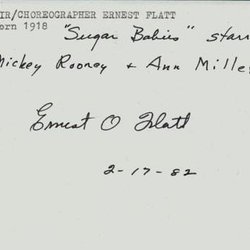 IR/CHOREOGRAPHER ERNEST FLATT
orn 1918
"Sugar Babies" starr
Mickey Rooney + Ann Mille
Ernest O Flatt
2-17-82